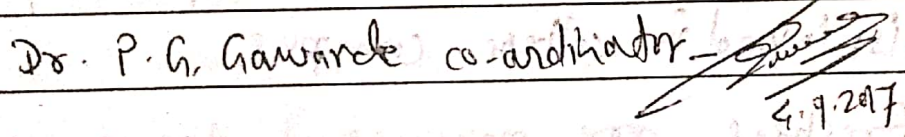 Dr. P. G. Gawande co-ordinator -
4.9.2017